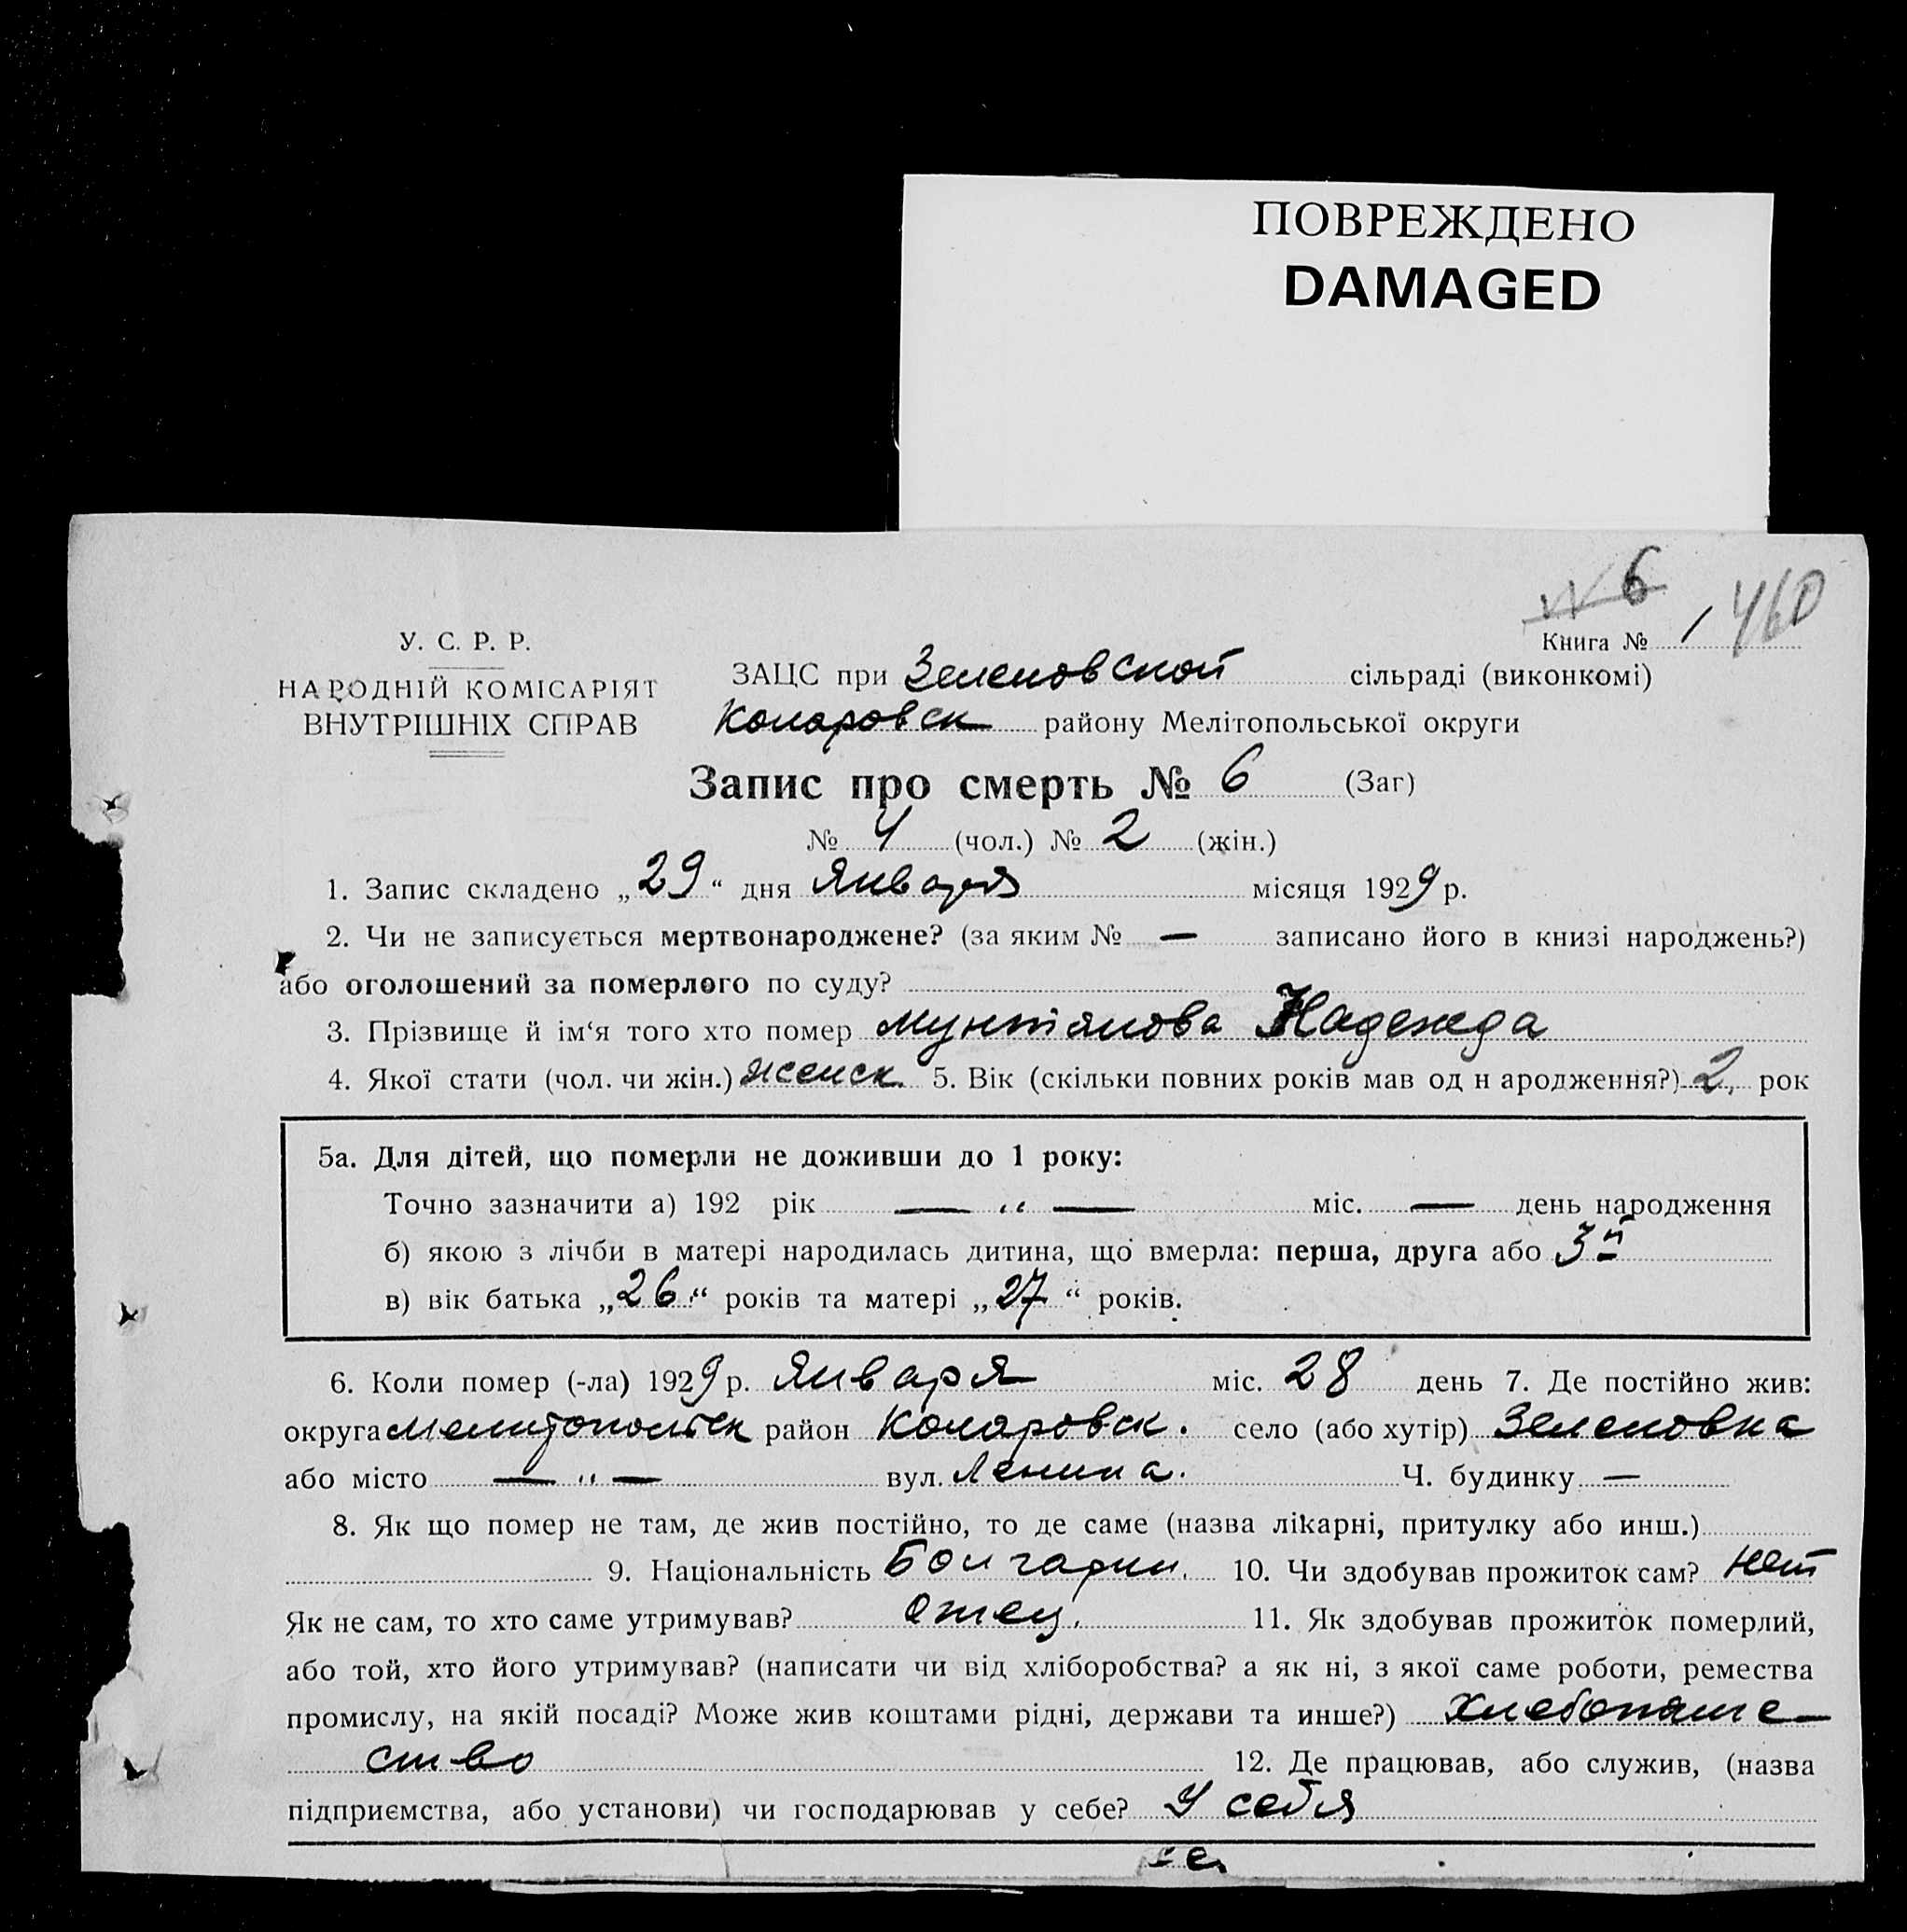 ПОВРЕЖДЕНО
DAMAGED
№ 6
460
Книга № 1
У. С. Р. Р.
НАРОДНІЙ КОМІСАРІЯТ
ВНУТРІШНІХ СПРАВ
ЗАЦС при Зеленовской сільраді (виконкомі)
Коларовск району Мелітопольської округи
Запис про смерть № 6 (Заг)
№ 4 (чол.) № 2 (жін.)
1. Запис складено „29“ дня Января місяця 1929 р.
2. Чи не записується мертвонароджене? (за яким № — записано його в книзі народжень?)
або оголошений за померлого по суду?
3. Прізвище й ім‘я того хто помер Мунтянова Надежда
4. Якої стати (чол. чи жін.) женск. 5. Вік (скільки повних років мав од н ародження?) 2. рок
5а. Для дітей, що померли не доживши до 1 року:
Точно зазначити а) 192 рік — „ — міс. — день народження
б) якою з лічби в матері народилась дитина, що вмерла: перша, друга або 3й
в) вік батька „26“ років та матері „27“ років.
6. Коли помер (-ла) 1929 р. Января міс. 28 день 7. Де постійно жив:
округа Мелитопольск район Коларовск. село (або хутір) Зеленовка
або місто — „ — вул. Ленина. Ч. будинку —
8. Як що помер не там, де жив постійно, то де саме (назва лікарні, притулку або инш.)
9. Національність Болгарин. 10. Чи здобував прожиток сам? нет
Як не сам, то хто саме утримував? Отец. 11. Як здобував прожиток померлий,
або той, хто його утримував? (написати чи від хліборобства? а як ні, з якої саме роботи, ремества
промислу, на якій посаді? Може жив коштами рідні, держави та инше?) Хлебопаше-
ство 12. Де працював, або служив, (назва
підприємства, або установи) чи господарював у себе? У себя